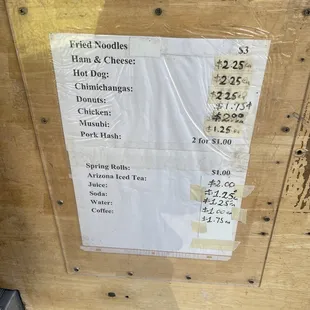 Fried Noodles $3
Ham & Cheese: $2.25 ea
Hot Dog: $2.25 ea
Chimichangas: $2.25 ea
Donuts: $1.75
Chicken: $2.00
Musubi: $1.25 ea
Pork Hash: 2 for $1.00
Spring Rolls: $1.00
Arizona Iced Tea: $2.00
Juice: $1.25 ea
Soda: $1.25 ea
Water: $1.00 ea
Coffee: $1.75 ea